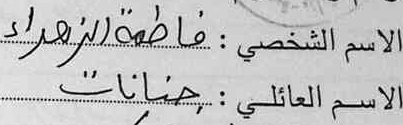 الاسم الشخصي : فاطمة الزهراء
الاسم العائلي : جنانات